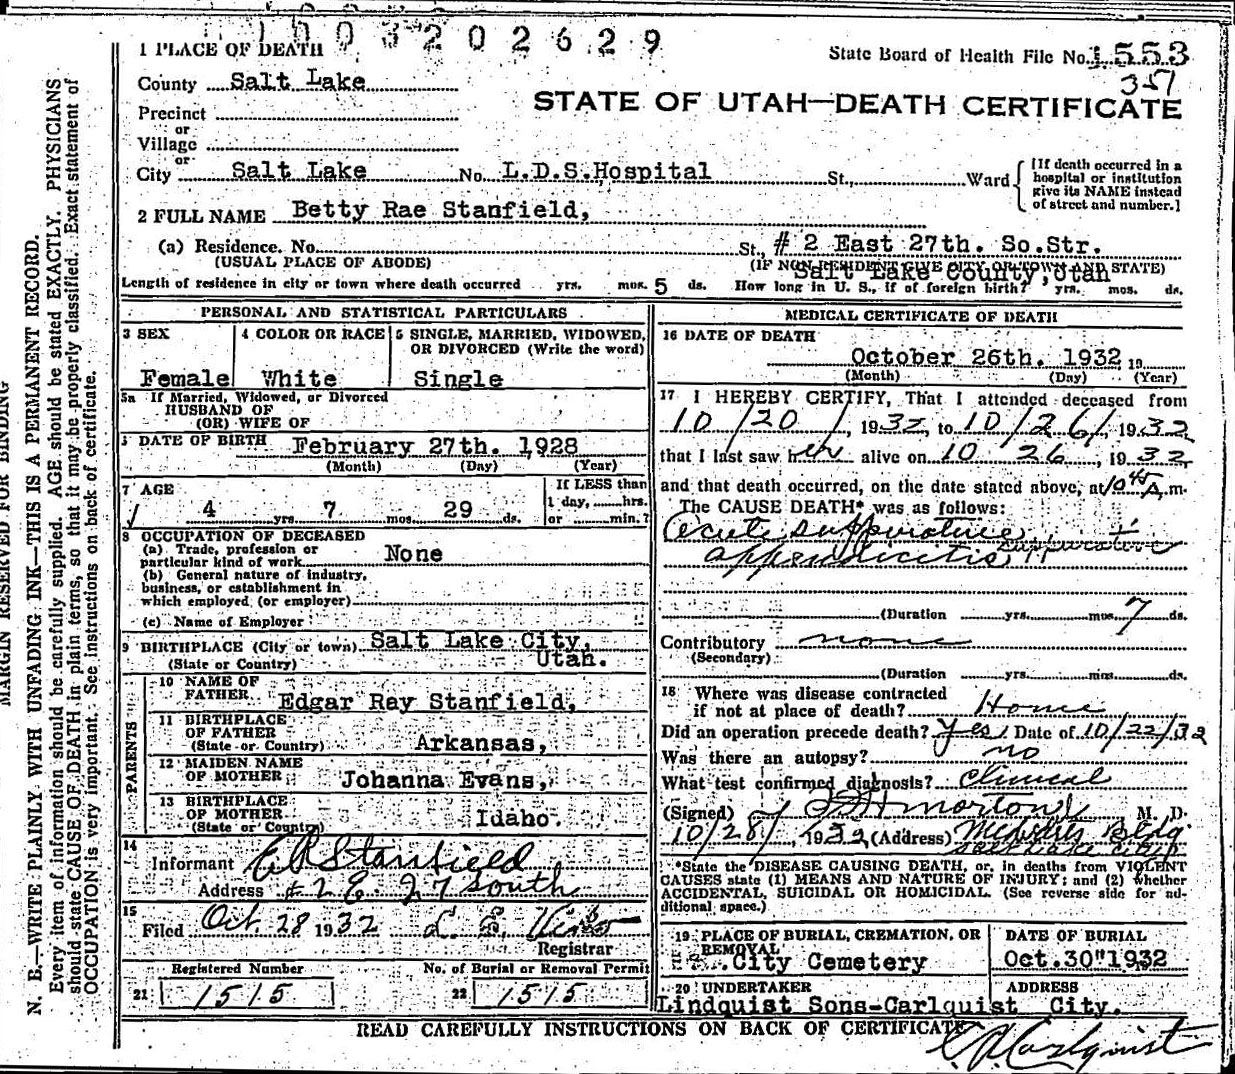 1003202629
1 PLACE OF DEATH
State Board of Health File No. 1553
357
County Salt Lake
STATE OF UTAH—DEATH CERTIFICATE
Precinct
or
Village
or
City Salt Lake No. L.D.S.Hospital St., Ward
[If death occurred in a hospital or institution give its NAME instead of street and number.]
2 FULL NAME Betty Rae Stanfield,
(a) Residence. No. St., # 2 East 27th. So.Str.
(USUAL PLACE OF ABODE) (IF NON-RESIDENT GIVE CITY OR TOWN AND STATE)
Salt Lake County, Utah
Length of residence in city or town where death occurred yrs. mos. 5 ds. How long in U. S., if of foreign birth? yrs. mos. ds.
PERSONAL AND STATISTICAL PARTICULARS
3 SEX
Female
4 COLOR OR RACE
White
5 SINGLE, MARRIED, WIDOWED,
OR DIVORCED (Write the word)
Single
5a If Married, Widowed, or Divorced
HUSBAND OF
(OR) WIFE OF
DATE OF BIRTH February 27th. 1928
(Month) (Day) (Year)
7 AGE
4 yrs. 7 mos. 29 ds.
If LESS than
1 day, hrs.
or min.?
8 OCCUPATION OF DECEASED
(a) Trade, profession or
particular kind of work None
(b) General nature of industry,
business, or establishment in
which employed (or employer)
(c) Name of Employer
9 BIRTHPLACE (City or town) Salt Lake City,
(State or Country) Utah.
PARENTS
10 NAME OF
FATHER Edgar Ray Stanfield,
11 BIRTHPLACE
OF FATHER
(State or Country) Arkansas,
12 MAIDEN NAME
OF MOTHER Johanna Evans,
13 BIRTHPLACE
OF MOTHER
(State or Country) Idaho.
14
Informant E R Stanfield
Address # 2 E. 27 South
15
Filed Oct. 28 1932
Registrar
Registered Number
21 1515
No. of Burial or Removal Permit
22 1515
MEDICAL CERTIFICATE OF DEATH
16 DATE OF DEATH
October 26th. 1932 19
(Month) (Day) (Year)
17 I HEREBY CERTIFY, That I attended deceased from
10/20/, 1932, to 10/26/, 1932
that I last saw her alive on 10 26, 1932
and that death occurred, on the date stated above, at 10 45 A.m.
The CAUSE DEATH* was as follows:
Acute suppurative
appendicitis suppurative
(Duration yrs. mos. 7 ds.
Contributory none
(Secondary)
(Duration yrs. mos. ds.
18 Where was disease contracted
if not at place of death? Home
Did an operation precede death? Yes, Date of 10/22/32
Was there an autopsy? no
What test confirmed diagnosis? Clinical
(Signed) Morton M. D.
10/28/, 1932 (Address) McIntires Bldg
Salt Lake City
*State the DISEASE CAUSING DEATH, or, in deaths from VIOLENT
CAUSES state (1) MEANS AND NATURE OF INJURY; and (2) whether
ACCIDENTAL, SUICIDAL OR HOMICIDAL. (See reverse side for ad-
ditional space.)
19 PLACE OF BURIAL, CREMATION, OR
REMOVAL
City Cemetery
DATE OF BURIAL
Oct.30" 1932
20 UNDERTAKER
Lindquist Sons-Carlquist
ADDRESS
City.
READ CAREFULLY INSTRUCTIONS ON BACK OF CERTIFICATE
Carlquist
MARGIN RESERVED FOR BINDING
N. B.—WRITE PLAINLY WITH UNFADING INK—THIS IS A PERMANENT RECORD.
Every item of information should be carefully supplied. AGE should be stated EXACTLY. PHYSICIANS
should state CAUSE OF DEATH in plain terms, so that it may be properly classified. Exact statement of
OCCUPATION is very important. See instructions on back of certificate.